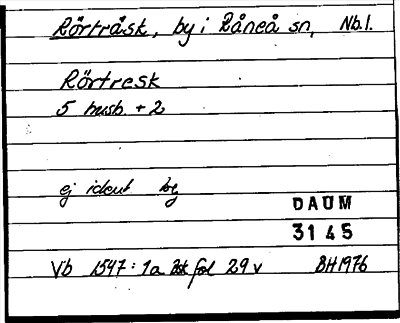 Rörträsk, by i Råneå sn, Nb.l.
Rörtresk
5 husb. + 2
ej ident by
DAUM
3145
Vb 1547:1a Bst fol 29 v BH 1976